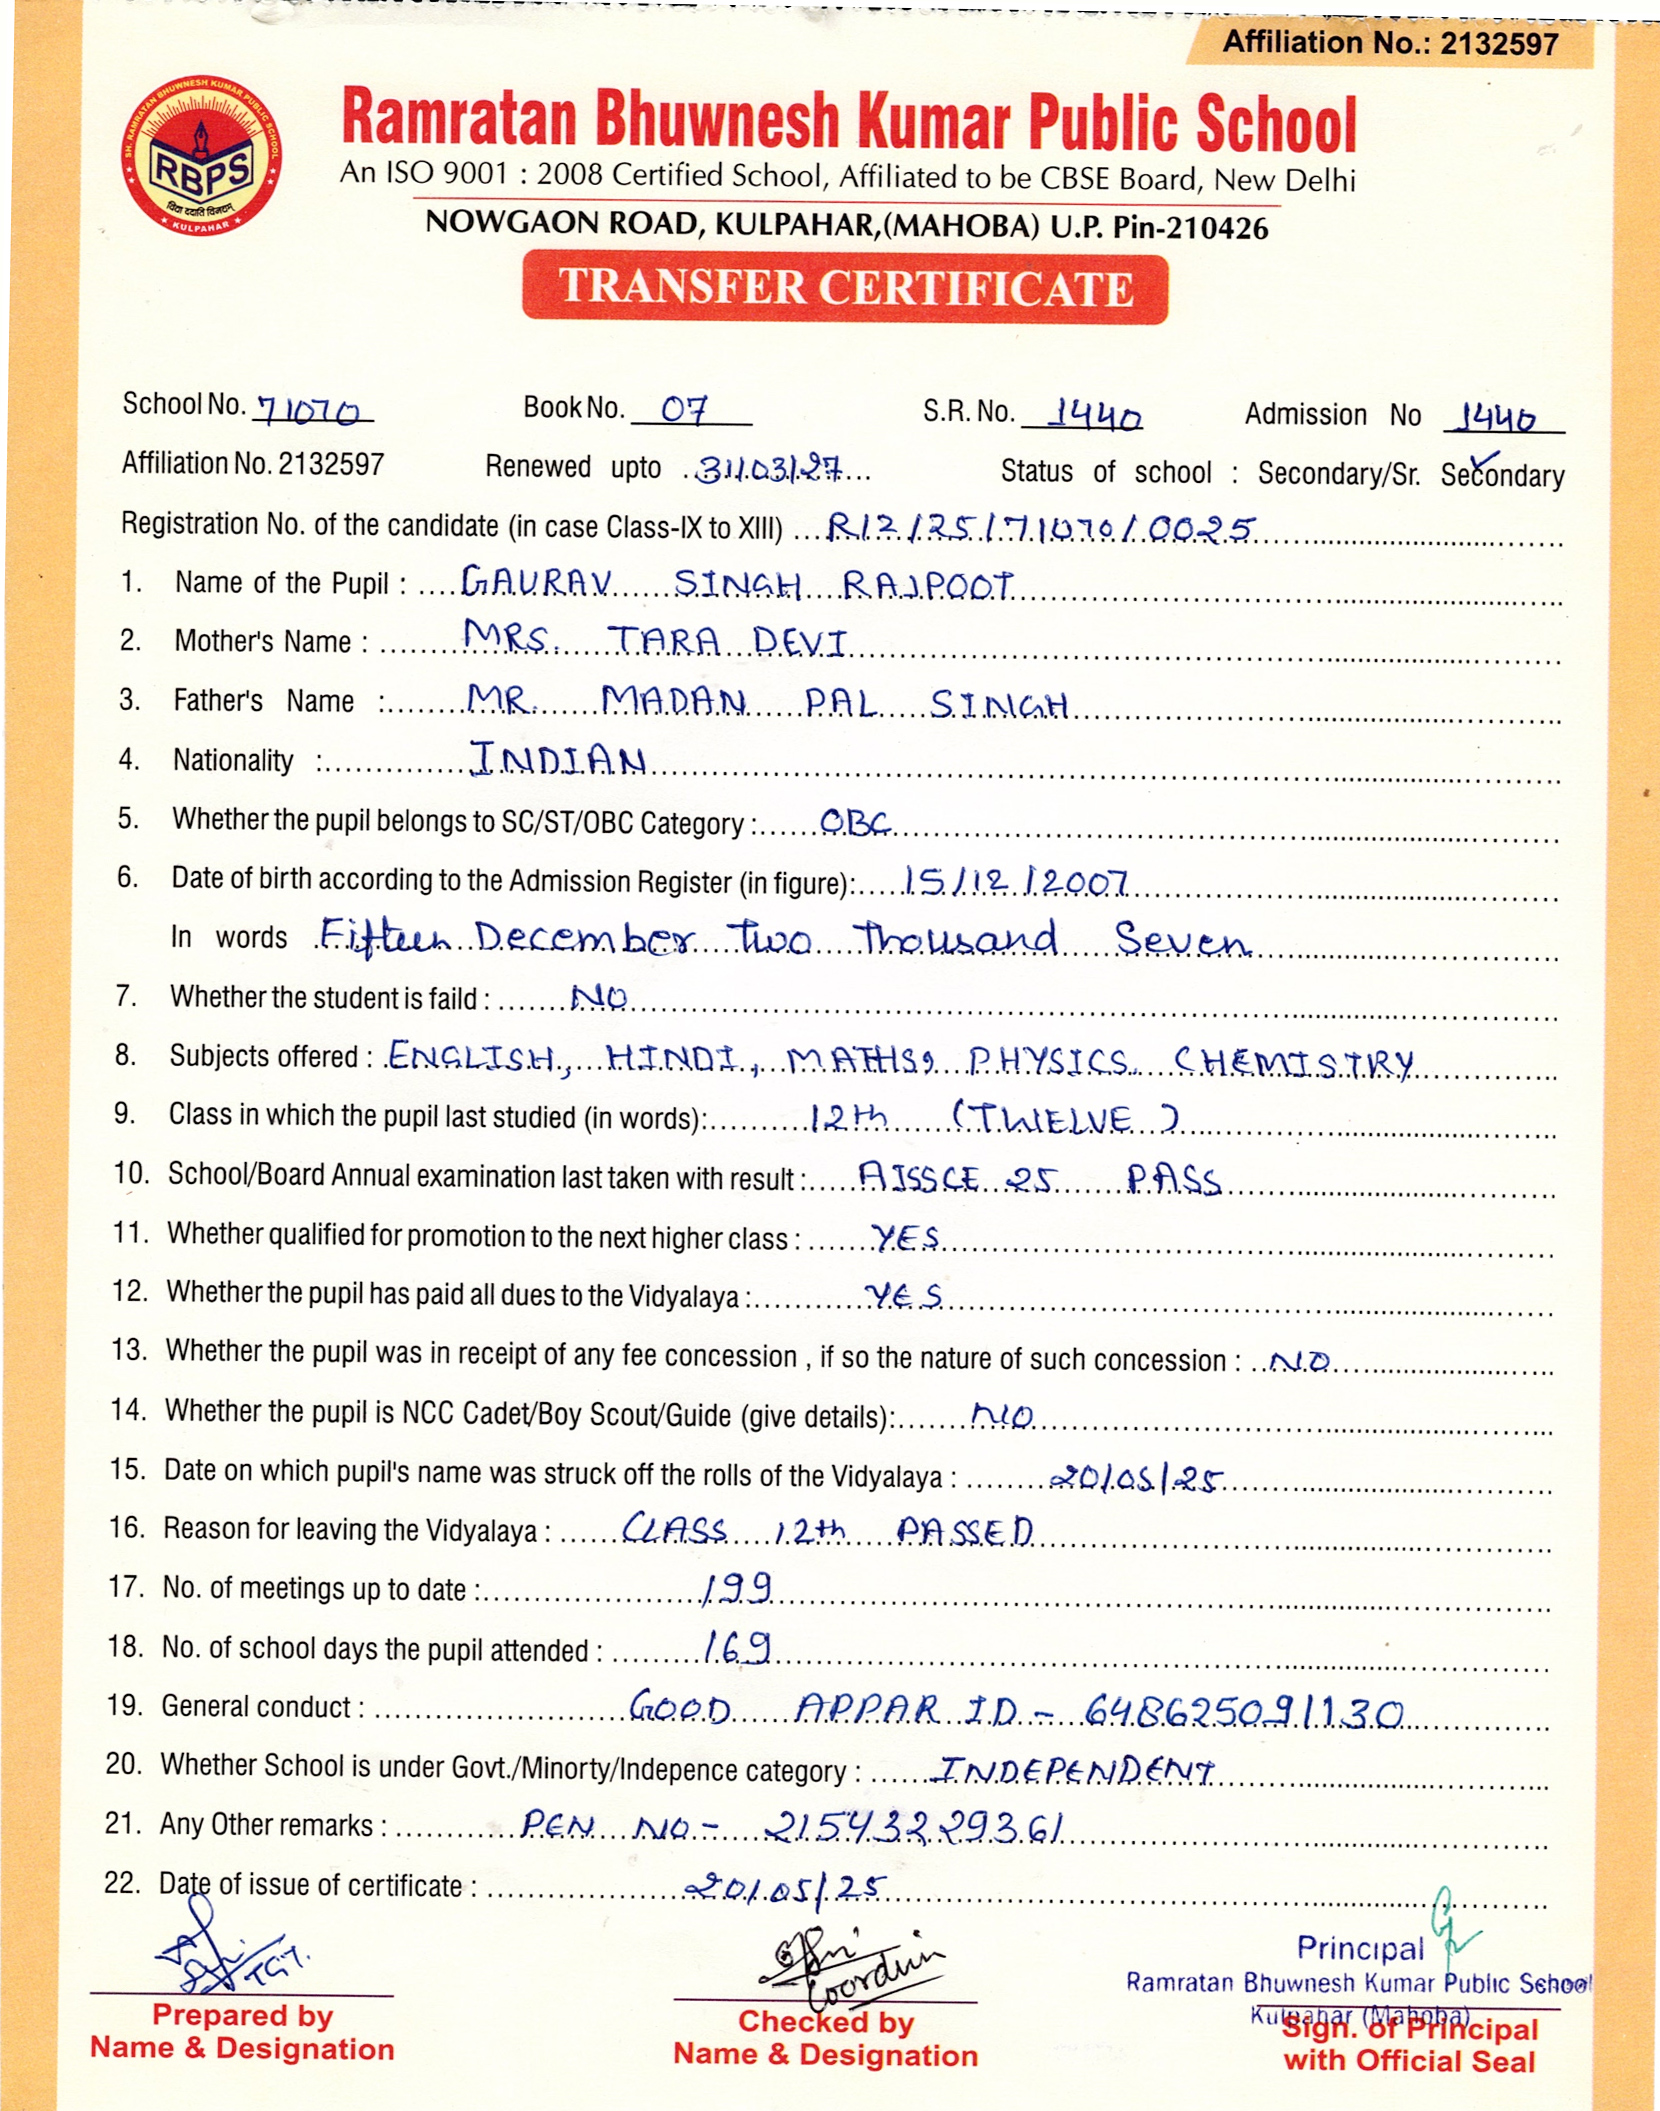 Affiliation No.: 2132597
SH. RAMRATAN BHUWNESH KUMAR PUBLIC SCHOOL
RBPS
विद्या ददाति विनयम्
KULPAHAR
Ramratan Bhuwnesh Kumar Public School
An ISO 9001 : 2008 Certified School, Affiliated to be CBSE Board, New Delhi
NOWGAON ROAD, KULPAHAR,(MAHOBA) U.P. Pin-210426
TRANSFER CERTIFICATE
School No. 71070 Book No. 07 S.R. No. 1440 Admission No 1440
Affiliation No. 2132597 Renewed upto 31/03/27 Status of school : Secondary/Sr. Secondary
Registration No. of the candidate (in case Class-IX to XIII) R12/25/71070/0025
1. Name of the Pupil : GAURAV SINGH RAJPOOT
2. Mother's Name : MRS. TARA DEVI
3. Father's Name : MR. MADAN PAL SINGH
4. Nationality : INDIAN
5. Whether the pupil belongs to SC/ST/OBC Category : OBC
6. Date of birth according to the Admission Register (in figure): 15/12/2007
In words Fifteen December Two Thousand Seven
7. Whether the student is faild : NO
8. Subjects offered : ENGLISH, HINDI, MATHS, PHYSICS, CHEMISTRY
9. Class in which the pupil last studied (in words): 12th (TWELVE)
10. School/Board Annual examination last taken with result : AISSCE 25 PASS
11. Whether qualified for promotion to the next higher class : YES
12. Whether the pupil has paid all dues to the Vidyalaya : YES
13. Whether the pupil was in receipt of any fee concession , if so the nature of such concession : NO
14. Whether the pupil is NCC Cadet/Boy Scout/Guide (give details): NO
15. Date on which pupil's name was struck off the rolls of the Vidyalaya : 20/05/25
16. Reason for leaving the Vidyalaya : CLASS 12th PASSED
17. No. of meetings up to date : 199
18. No. of school days the pupil attended : 169
19. General conduct : GOOD APPAR ID - 648625091130
20. Whether School is under Govt./Minorty/Indepence category : INDEPENDENT
21. Any Other remarks : PEN NO - 21543229361
22. Date of issue of certificate : 20/05/25
TGT.
Principal
Ramratan Bhuwnesh Kumar Public School
Kulpahar (Mahoba)
Prepared by
Name & Designation
Checked by
Name & Designation
Sign. of Principal
with Official Seal